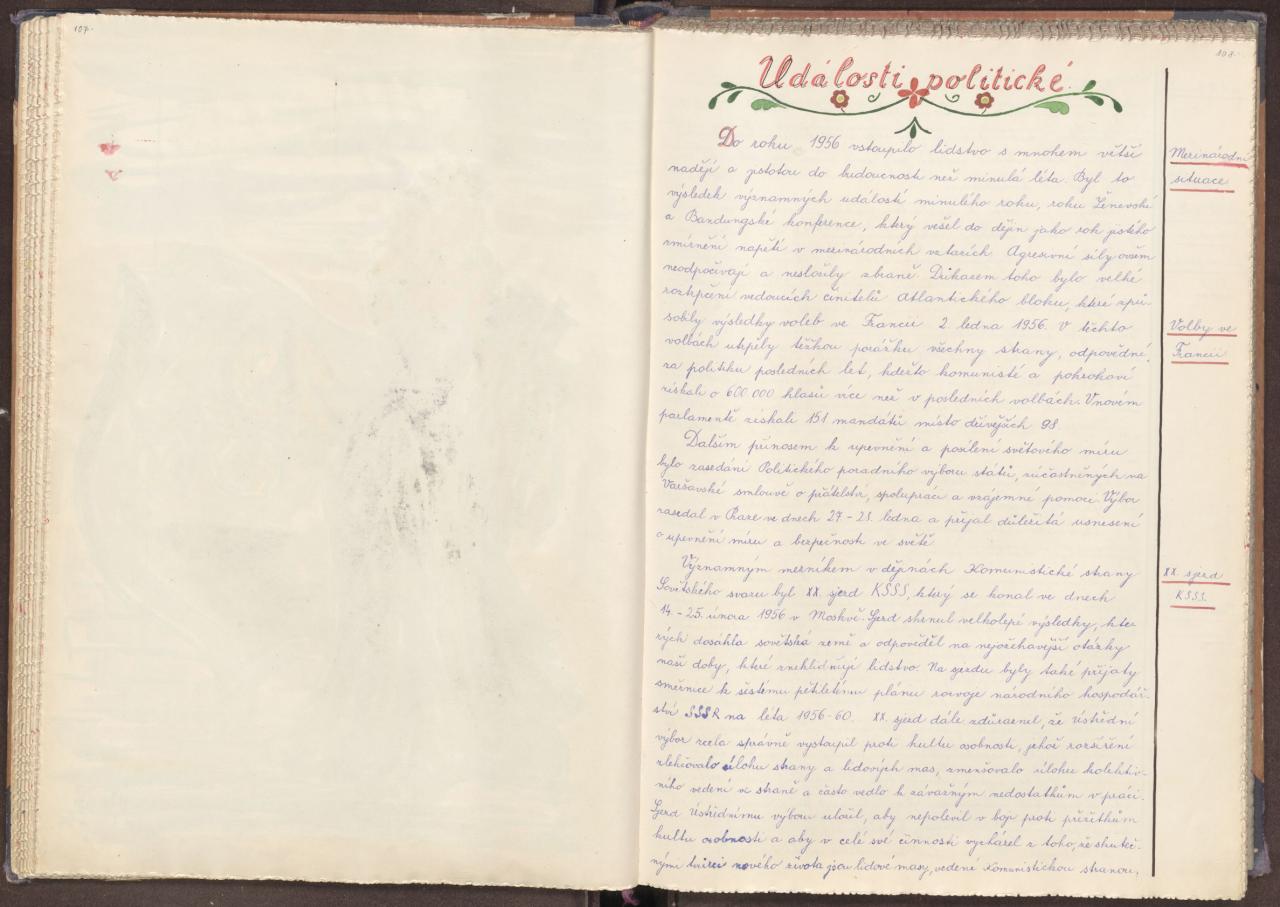 107.
108.
Události politické.
Do roku 1956 vstoupilo lidstvo s mnohem větší
Mezinárodní
nadějí a jistotou do budoucnosti než minulá léta. Byl to
situace
výsledek významných událostí minulého roku, roku Ženevské
a Bandungské konference, který vešel do dějin jako rok jistého
zmírnění napětí v mezinárodních vztazích. Agresivní síly ovšem
neodpočívají a nesložily zbraně. Důkazem toho bylo velké
roztrpčení vedoucích činitelů Atlantického bloku, které způ-
sobily výsledky voleb ve Francii 2. ledna 1956. V těchto
Volby ve
volbách utrpěly těžkou porážku všechny strany, odpovědné
Francii
za politiku posledních let, kdežto komunisté a pokrokoví
získali o 600.000 hlasů více než v posledních volbách. V novém
parlamentě získali 151 mandátů místo dřívějších 98.
Dalším přínosem k upevnění a posílení světového míru
bylo zasedání Politického poradního výboru států, zúčastněných na
Varšavské smlouvě o přátelství, spolupráci a vzájemné pomoci. Výbor
zasedal v Praze ve dnech 27.-28. ledna a přijal důležitá usnesení
o upevnění míru a bezpečnosti ve světě
Významným mezníkem v dějinách Komunistické strany
XX. sjezd
Sovětského svazu byl XX. sjezd KSSS, který se konal ve dnech
KSSS.
14.-25. února 1956 v Moskvě. Sjezd shrnul velkolepé výsledky, kte-
rých dosáhla sovětská země a odpověděl na nejožehavější otázky
naší doby, které zneklidňují lidstvo. Na sjezdu byly také přijaty
směrnice k šestému pětiletému plánu rozvoje národního hospodář-
ství SSSR na léta 1956-60. XX. sjezd dále zdůraznil, že ústřední
výbor zcela správně vystoupil proti kultu osobnosti, jehož rozšíření
zlehčovalo úlohu strany a lidových mas, zmenšovalo úlohu kolektiv-
ního vedení ve straně a často vedlo k závažným nedostatkům v práci.
Sjezd ústřednímu výboru uložil, aby nepolevil v boji proti přežitkům
kultu osobnosti a aby v celé své činnosti vycházel z toho, že skuteč-
nými tvůrci nového života jsou lidové masy, vedené Komunistickou stranou,